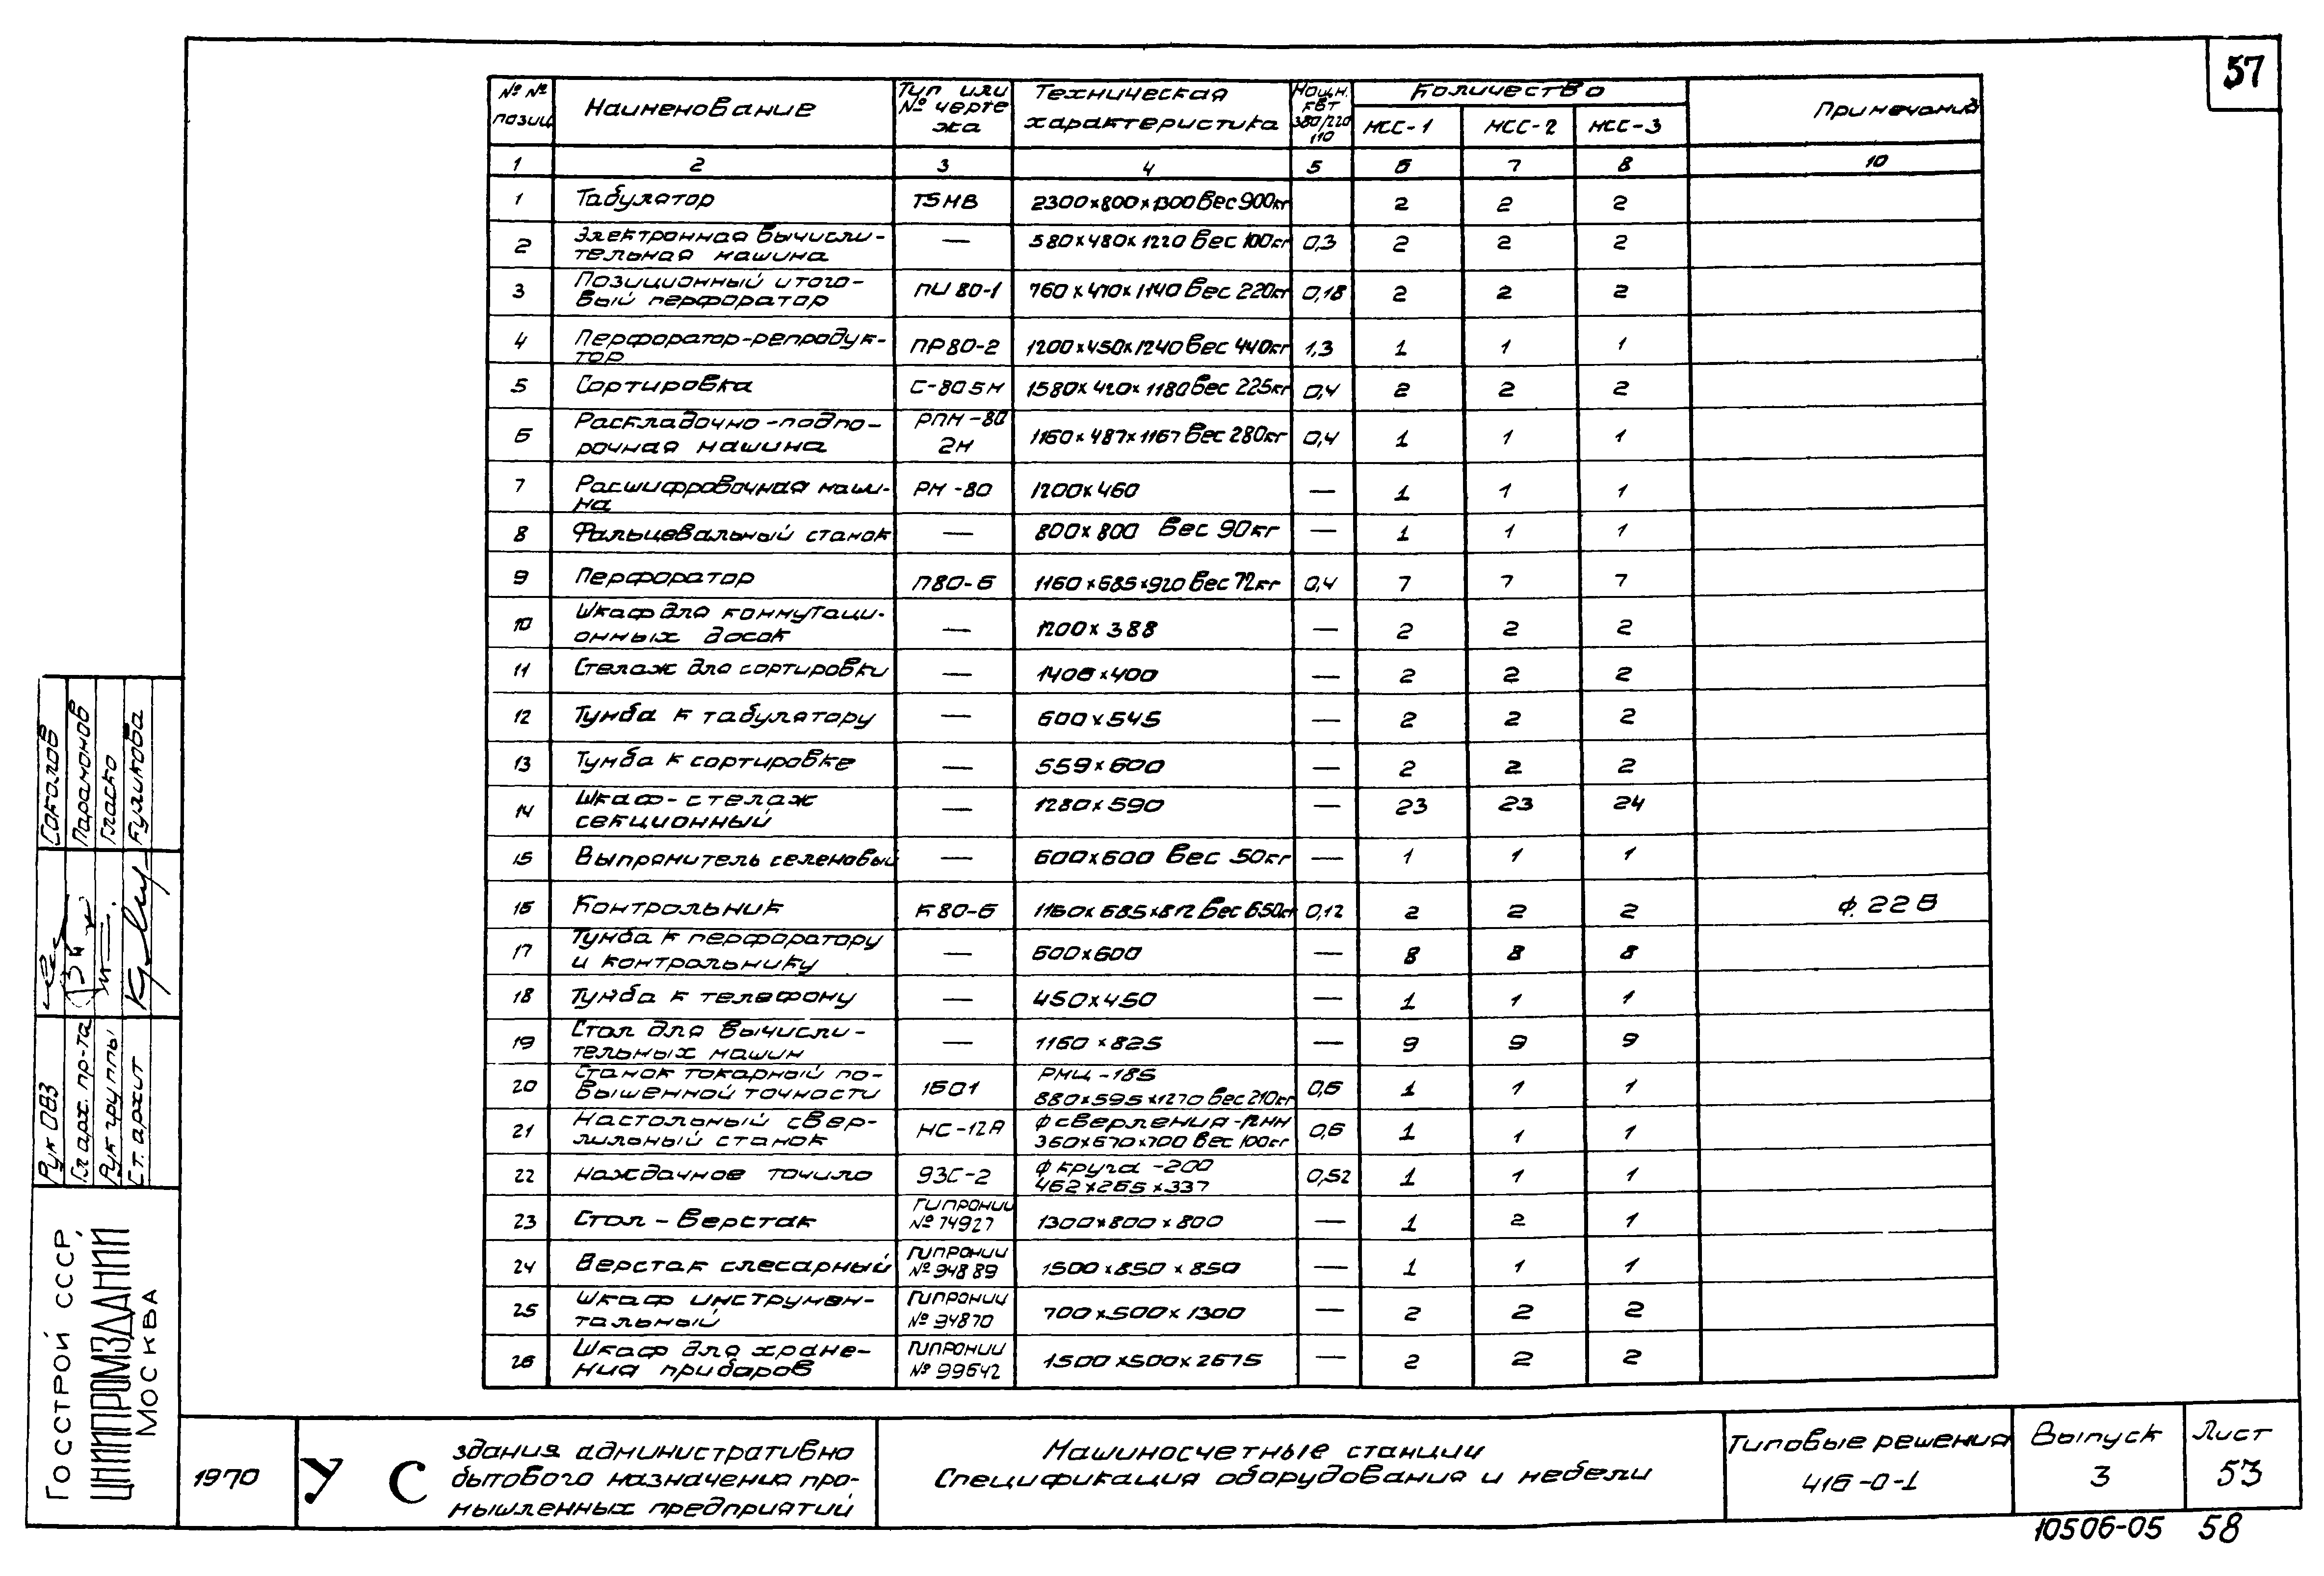 57
№№ позиц | Наименование | Тип или № чертежа | Техническая характеристика | Мощн. квт 380/220 110 | Количество | Примечания
МСС-1 | МСС-2 | МСС-3
1 | 2 | 3 | 4 | 5 | 6 | 7 | 8 | 10
1 | Табулятор | Т5МВ | 2300х800х1300 Вес 900кг | 2 | 2 | 2
2 | Электронная вычисли-
тельная машина | — | 580х480х1220 Вес 100кг | 0,3 | 2 | 2 | 2
3 | Позиционный итого-
вый перфоратор | ПИ 80-1 | 760х470х1140 Вес 220кг | 0,18 | 2 | 2 | 2
4 | Перфоратор-репродук-
тор | ПР80-2 | 1200х450х1240 Вес 440кг | 1,3 | 1 | 1 | 1
5 | Сортировка | С-80 5М | 1580х420х1180 Вес 225кг | 0,4 | 2 | 2 | 2
6 | Раскладочно-подпо-
рочная машина | РПМ-80
2М | 1160х487х1167 Вес 280кг | 0,4 | 1 | 1 | 1
7 | Расшифровочная маши-
на | РМ-80 | 1200х460 | — | 1 | 1 | 1
8 | Фальцевальный станок | — | 800х800 Вес 90кг | — | 1 | 1 | 1
9 | Перфоратор | П80-6 | 1160х685х920 Вес 72кг | 0,4 | 7 | 7 | 7
10 | Шкаф для коммутаци-
онных досок | — | 1200х388 | — | 2 | 2 | 2
11 | Стелаж для сортировки | — | 1406х400 | — | 2 | 2 | 2
12 | Тумба к табулятору | — | 600х545 | — | 2 | 2 | 2
13 | Тумба к сортировке | — | 559х600 | — | 2 | 2 | 2
14 | Шкаф-стелаж
секционный | — | 1280х590 | — | 23 | 23 | 24
15 | Выпрямитель селеновый | — | 600х600 Вес 50кг | — | 1 | 1 | 1
16 | Контрольник | К80-6 | 1160х685х812 Вес 650кг | 0,12 | 2 | 2 | 2
17 | Тумба к перфоратору
и контрольнику | — | 600х600 | — | 8 | 8 | 8
18 | Тумба к телефону | — | 450х450 | — | 1 | 1 | 1
19 | Стол для вычисли-
тельных машин | — | 1160х825 | — | 9 | 9 | 9
20 | Станок токарный по-
вышенной точности | 1601 | РМЦ-185
880х595х1270 Вес 210кг | 0,6 | 1 | 1 | 1
21 | Настольный свер-
лильный станок | НС-12А | ф сверления-12мм
360х670х700 Вес 100кг | 0,6 | 1 | 1 | 1
22 | Наждачное точило | 93С-2 | ф круга -200
462х265х337 | 0,52 | 1 | 1 | 1
23 | Стол-верстак | Гипронии
№ 74927 | 1300х800х800 | — | 1 | 2 | 1
24 | Верстак слесарный | Гипронии
№ 94889 | 1500х850х850 | — | 1 | 1 | 1
25 | Шкаф инструмен-
тальный | Гипронии
№ 94870 | 700х500х1300 | — | 2 | 2 | 2
26 | Шкаф для хране-
ния прибаров | Гипронии
№ 99642 | 1500х500х2675 | — | 2 | 2 | 2
Соколов
Парамонов
Гласко
Куликова
Рук ОВЗ
Гл арх. пр-та
Рук группы
Ст. архит
Госстрой СССР
ЦНИИПРОМЗДАНИЙ
Москва
1970
У С
здания административно
бытового назначения про-
мышленных предприятий
Машиносчетные станции
Спецификация оборудования и мебели
Типовые решения
416-0-1
Выпуск
3
Лист
53
10506-05 58